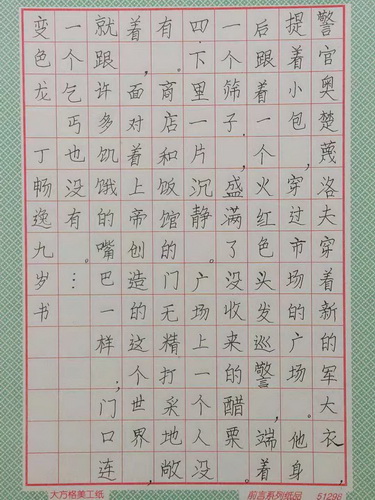 警官奥楚蔑洛夫穿着新的军大衣，
提着小包，穿过市场的广场。他身
后跟着一个火红色头发的巡警，端着
一个筛子，盛满了没收来的醋栗
四下里一片沉静。广场上一个人没
有，商店和饭馆的门无精打采地敞
着，面对着上帝创造的这个世界
就跟许多饥饿的嘴巴一样；门口连
一个乞丐也没有。…
变色龙 丁畅逸九岁书
大方格美工纸
前言系列纸品 51298